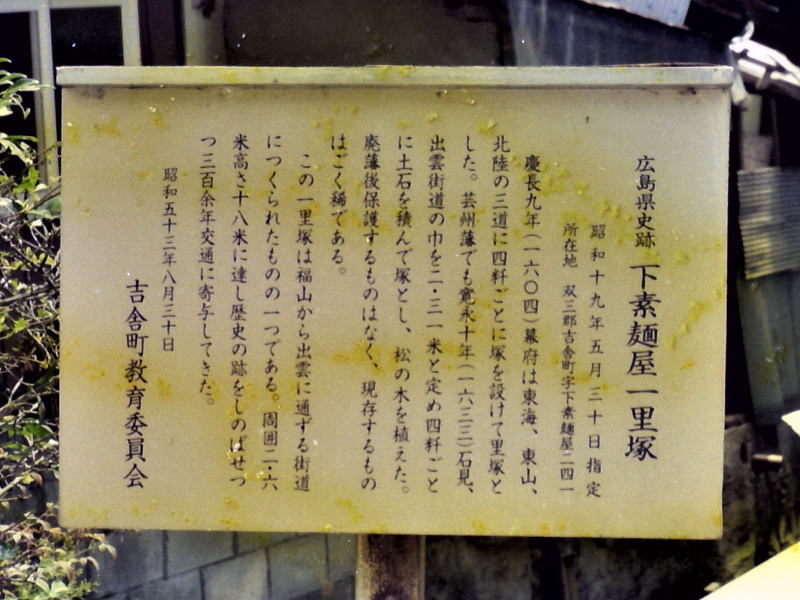 広島県史跡 下素麺屋一里塚
昭和十九年五月三十日指定
所在地 双三郡吉舎町字下素麺屋二四一
慶長九年(一六〇四)幕府は東海、東山、
北陸の三道に四粁ごとに塚を設けて里塚と
した。芸州藩でも寛永十年(一六三三)石見、
出雲街道の巾を二・三一米と定め四粁ごと
に土石を積んで塚とし、松の木を植えた。
廃藩後保護するものはなく、現存するもの
はごく稀である。
この一里塚は福山から出雲に通ずる街道
につくられたものの一つである。周囲二・六
米高さ十八米に達し歴史の跡をしのばせつ
つ三百余年交通に寄与してきた。
昭和五十三年八月三十日
吉舎町教育委員会